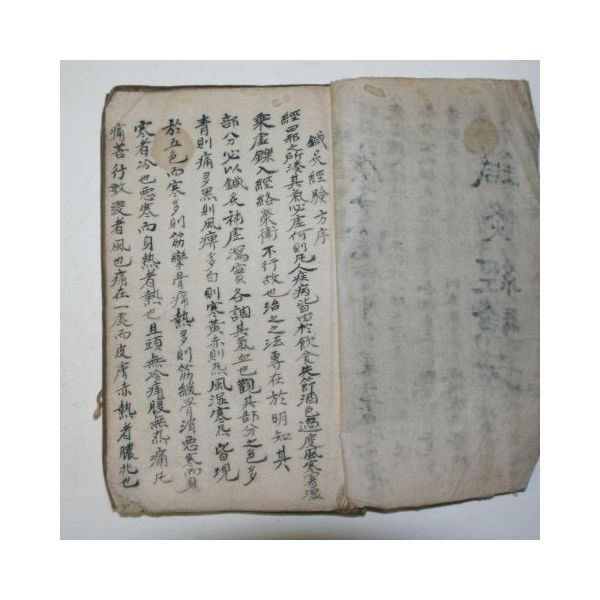 鍼灸經驗方序
經曰邪之所湊其氣必虛何則凡人疾病皆由於飲食失節酒色過度風寒暑濕
乘虛鑠入經絡榮衛不行故也治之之法專在於明知其
部分必以鍼灸補虛瀉實各調其氣血也觀其部分之色多
青則痛多黑則風痺多白則寒黃赤則熱風湿寒熱皆現
於五色而寒多則筋攣骨痛熱多則筋緩骨消惡寒而身
寒者冷也惡寒而身熱者熱也且頭無冷痛腹無熱痛凡
痛善行数變者風也痛在一處而皮膚赤熱者膿兆也
鍼灸經驗方